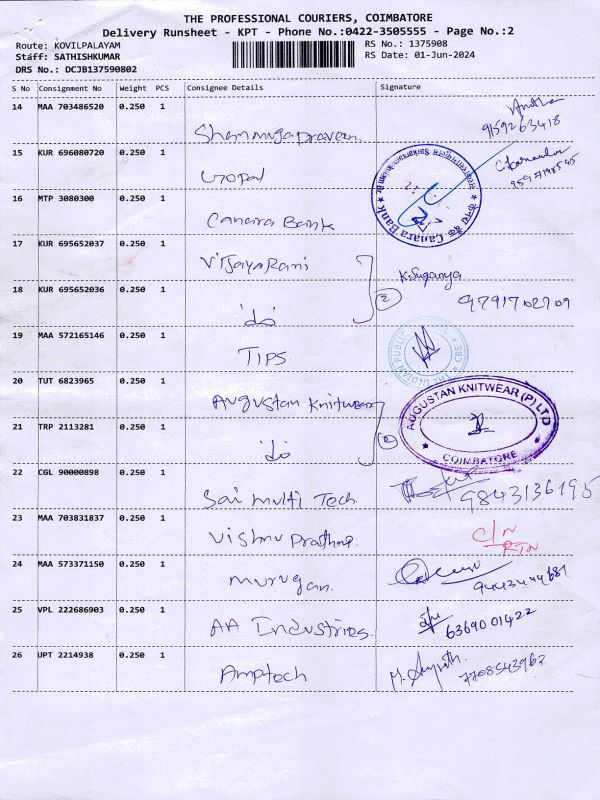 THE PROFESSIONAL COURIERS, COIMBATORE
Delivery Runsheet - KPT - Phone No.:0422-3505555 - Page No.:2
Route: KOVILPALAYAM RS No.: 1375908
Staff: SATHISHKUMAR RS Date: 01-Jun-2024
DRS No.: DCJB137590802
S No Consignment No Weight PCS Consignee Details Signature
14 MAA 703486520 0.250 1
Shanmugapraveen. 9159263418
15 KUR 696080720 0.250 1
Gopal
16 MTP 3080300 0.250 1
Canara Bank Canara Bank
17 KUR 695652037 0.250 1
Vijayarani K.Suganya
18 KUR 695652036 0.250 1 2
'do' 9791702709
19 MAA 572165146 0.250 1
TIPS THE INDIAN PUBLIC
20 TUT 6823965 0.250 1
Augustan Knitwear AUGUSTAN KNITWEAR (P) LTD
21 TRP 2113281 0.250 1 2
'do' COIMBATORE
22 CGL 90000898 0.250 1
Sai Multi Tech 9843136195
23 MAA 703831837 0.250 1
Vishnu C/N
RTN
24 MAA 573371150 0.250 1
Murugan.
25 VPL 222686903 0.250 1
AA Industries. 6369001422
26 UPT 2214938 0.250 1
Amptech 7708543962